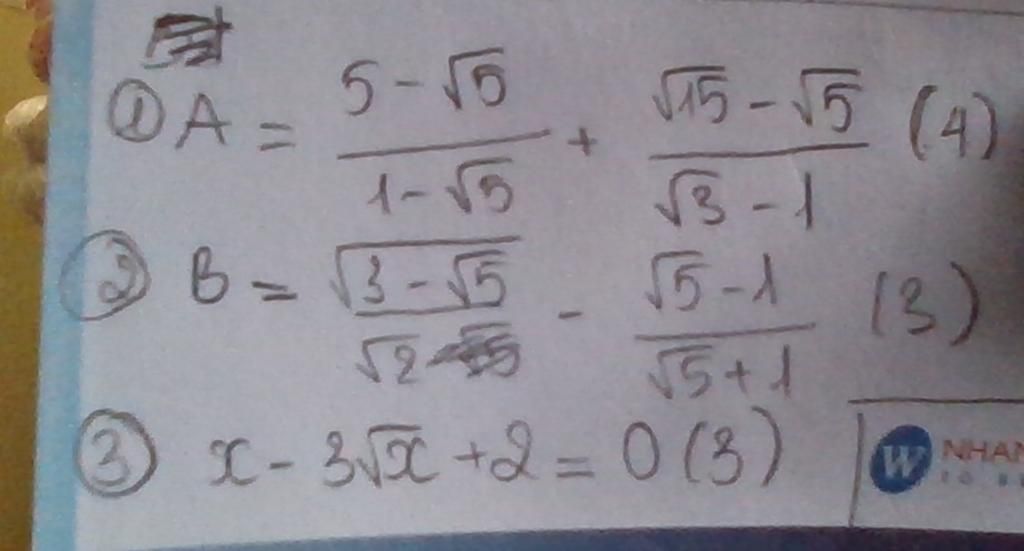 ① A = (5 - √5)/(1 - √5) + (√15 - √5)/(√3 - 1) (4)
② B = √(3 - √5)/√2 - (√5 - 1)/(√5 + 1) (3)
③ x - 3√x + 2 = 0 (3)
W NHAN